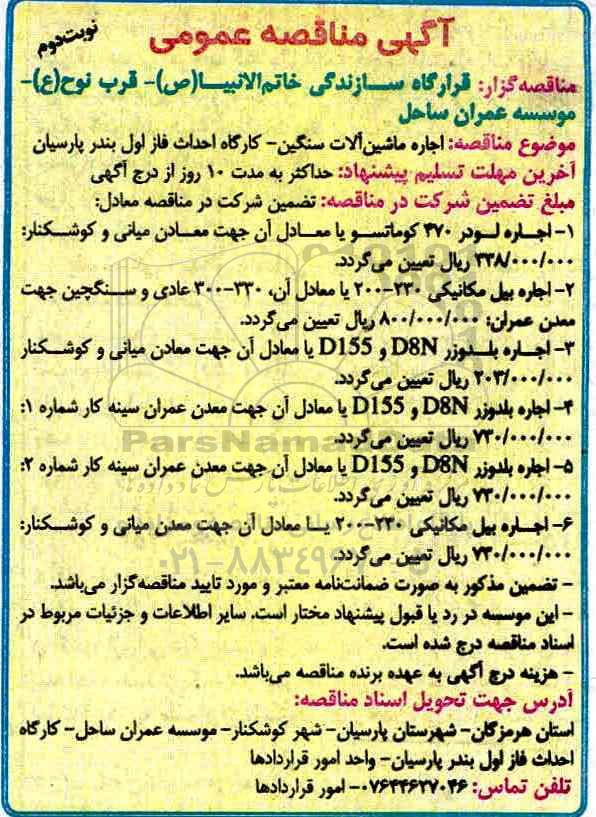 آگهی مناقصه عمومی
نوبت دوم
مناقصه‌گزار: قرارگاه سازندگی خاتم‌الانبیا(ص)- قرب نوح(ع)-
موسسه عمران ساحل
موضوع مناقصه: اجاره ماشین‌آلات سنگین- کارگاه احداث فاز اول بندر پارسیان
آخرین مهلت تسلیم پیشنهاد: حداکثر به مدت ۱۰ روز از درج آگهی
مبلغ تضمین شرکت در مناقصه: تضمین شرکت در مناقصه معادل:
۱- اجاره لودر ۴۷۰ کوماتسو یا معادل آن جهت معادن میانی و کوشکنار:
۳۳۸/۰۰۰/۰۰۰ ریال تعیین می‌گردد.
۲- اجاره بیل مکانیکی ۲۳۰-۲۰۰ یا معادل آن، ۳۳۰-۳۰۰ عادی و سنگچین جهت
معدن عمران: ۸۰۰/۰۰۰/۰۰۰ ریال تعیین می‌گردد.
۳- اجاره بلدوزر D8N و D155 یا معادل آن جهت معادن میانی و کوشکنار
۲۰۳/۰۰۰/۰۰۰ ریال تعیین می‌گردد.
۴- اجاره بلدوزر D8N و D155 یا معادل آن جهت معدن عمران سینه کار شماره ۱:
۷۳۰/۰۰۰/۰۰۰ ریال تعیین می‌گردد.
۵- اجاره بلدوزر D8N و D155 یا معادل آن جهت معدن عمران سینه کار شماره ۲:
۷۳۰/۰۰۰/۰۰۰ ریال تعیین می‌گردد.
۶- اجاره بیل مکانیکی ۲۳۰-۲۰۰ یا معادل آن جهت معدن میانی و کوشکنار:
۷۳۰/۰۰۰/۰۰۰ ریال تعیین می‌گردد.
- تضمین مذکور به صورت ضمانت‌نامه معتبر و مورد تایید مناقصه‌گزار می‌باشد.
- این موسسه در رد یا قبول پیشنهاد مختار است. سایر اطلاعات و جزئیات مربوط در
اسناد مناقصه درج شده است.
- هزینه درج آگهی به عهده برنده مناقصه می‌باشد.
آدرس جهت تحویل اسناد مناقصه:
استان هرمزگان- شهرستان پارسیان- شهر کوشکنار- موسسه عمران ساحل- کارگاه
احداث فاز اول بندر پارسیان- واحد امور قراردادها
تلفن تماس: ۰۷۶۴۴۶۳۷۰۴۶- امور قراردادها